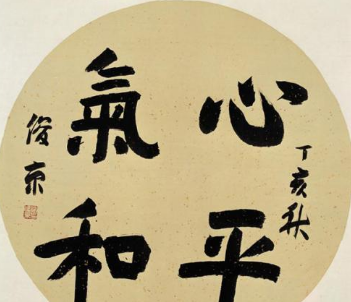 心平
氣和
丁亥秋
俊京